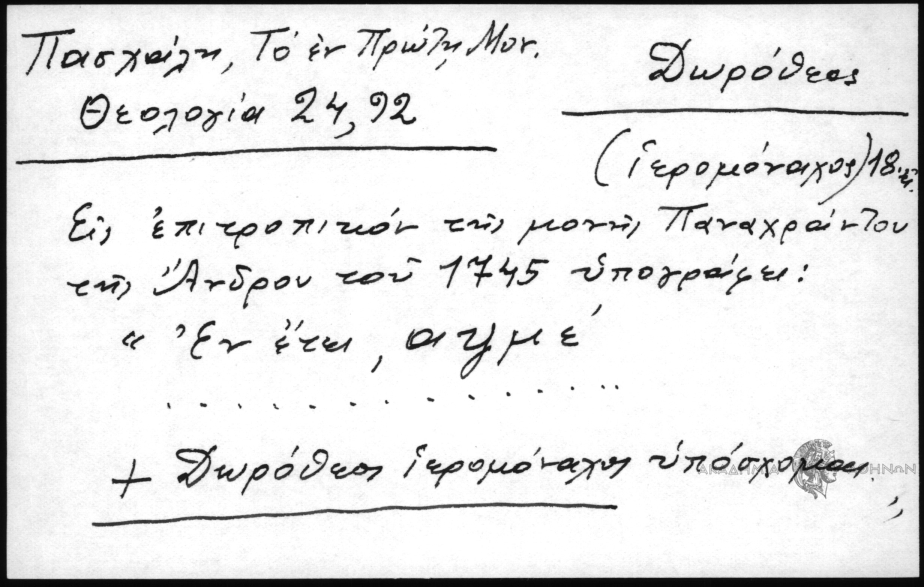 Πασχάλη, Τὸ ἐν Πρώτῃ Μον.
Θεολογία 24, 92
Δωρόθεος
(ἱερομόναχος) 18.
Εἰς ἐπιτροπικόν τῆς μονῆς Παναχράντου
τῆς Ἄνδρου τοῦ 1745 ὑπογράφει:
" Ἐν ἔτει ͵αψμέ
. . . . . . . . . . . . . .
+ Δωρόθεος ἱερομόναχος ὑπόσχομαι. "
ΑΚΑΔΗΜΙΑ ΑΘΗΝΩΝ